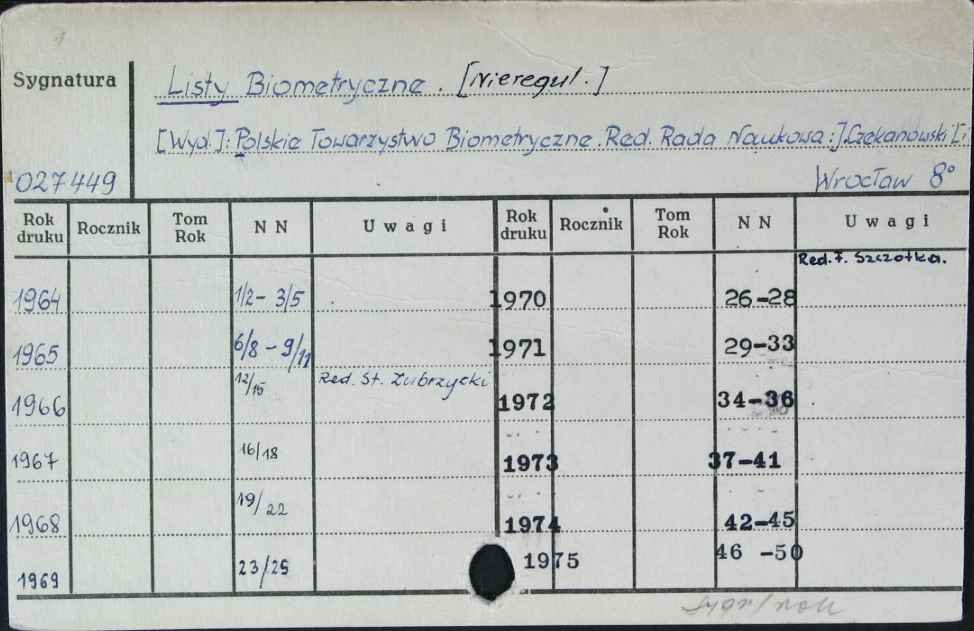 Sygnatura
Listy Biometryczne. [Nieregul.]
[Wyd.]: Polskie Towarzystwo Biometryczne. Red. Rada Naukowa:] Czekanowski [i
027449 Wrocław 8°
Rok druku Rocznik Tom Rok NN Uwagi Rok druku Rocznik Tom Rok NN Uwagi
Red. F. Szczotka.
1964 1/2 - 3/5 1970 26-28
1965 6/8 - 9/11 1971 29-33
1966 12/15 Red. St. Zubrzycki 1972 34-36
1967 16/18 1973 37-41
1968 19/22 1974 42-45
1969 23/25 1975 46 -50